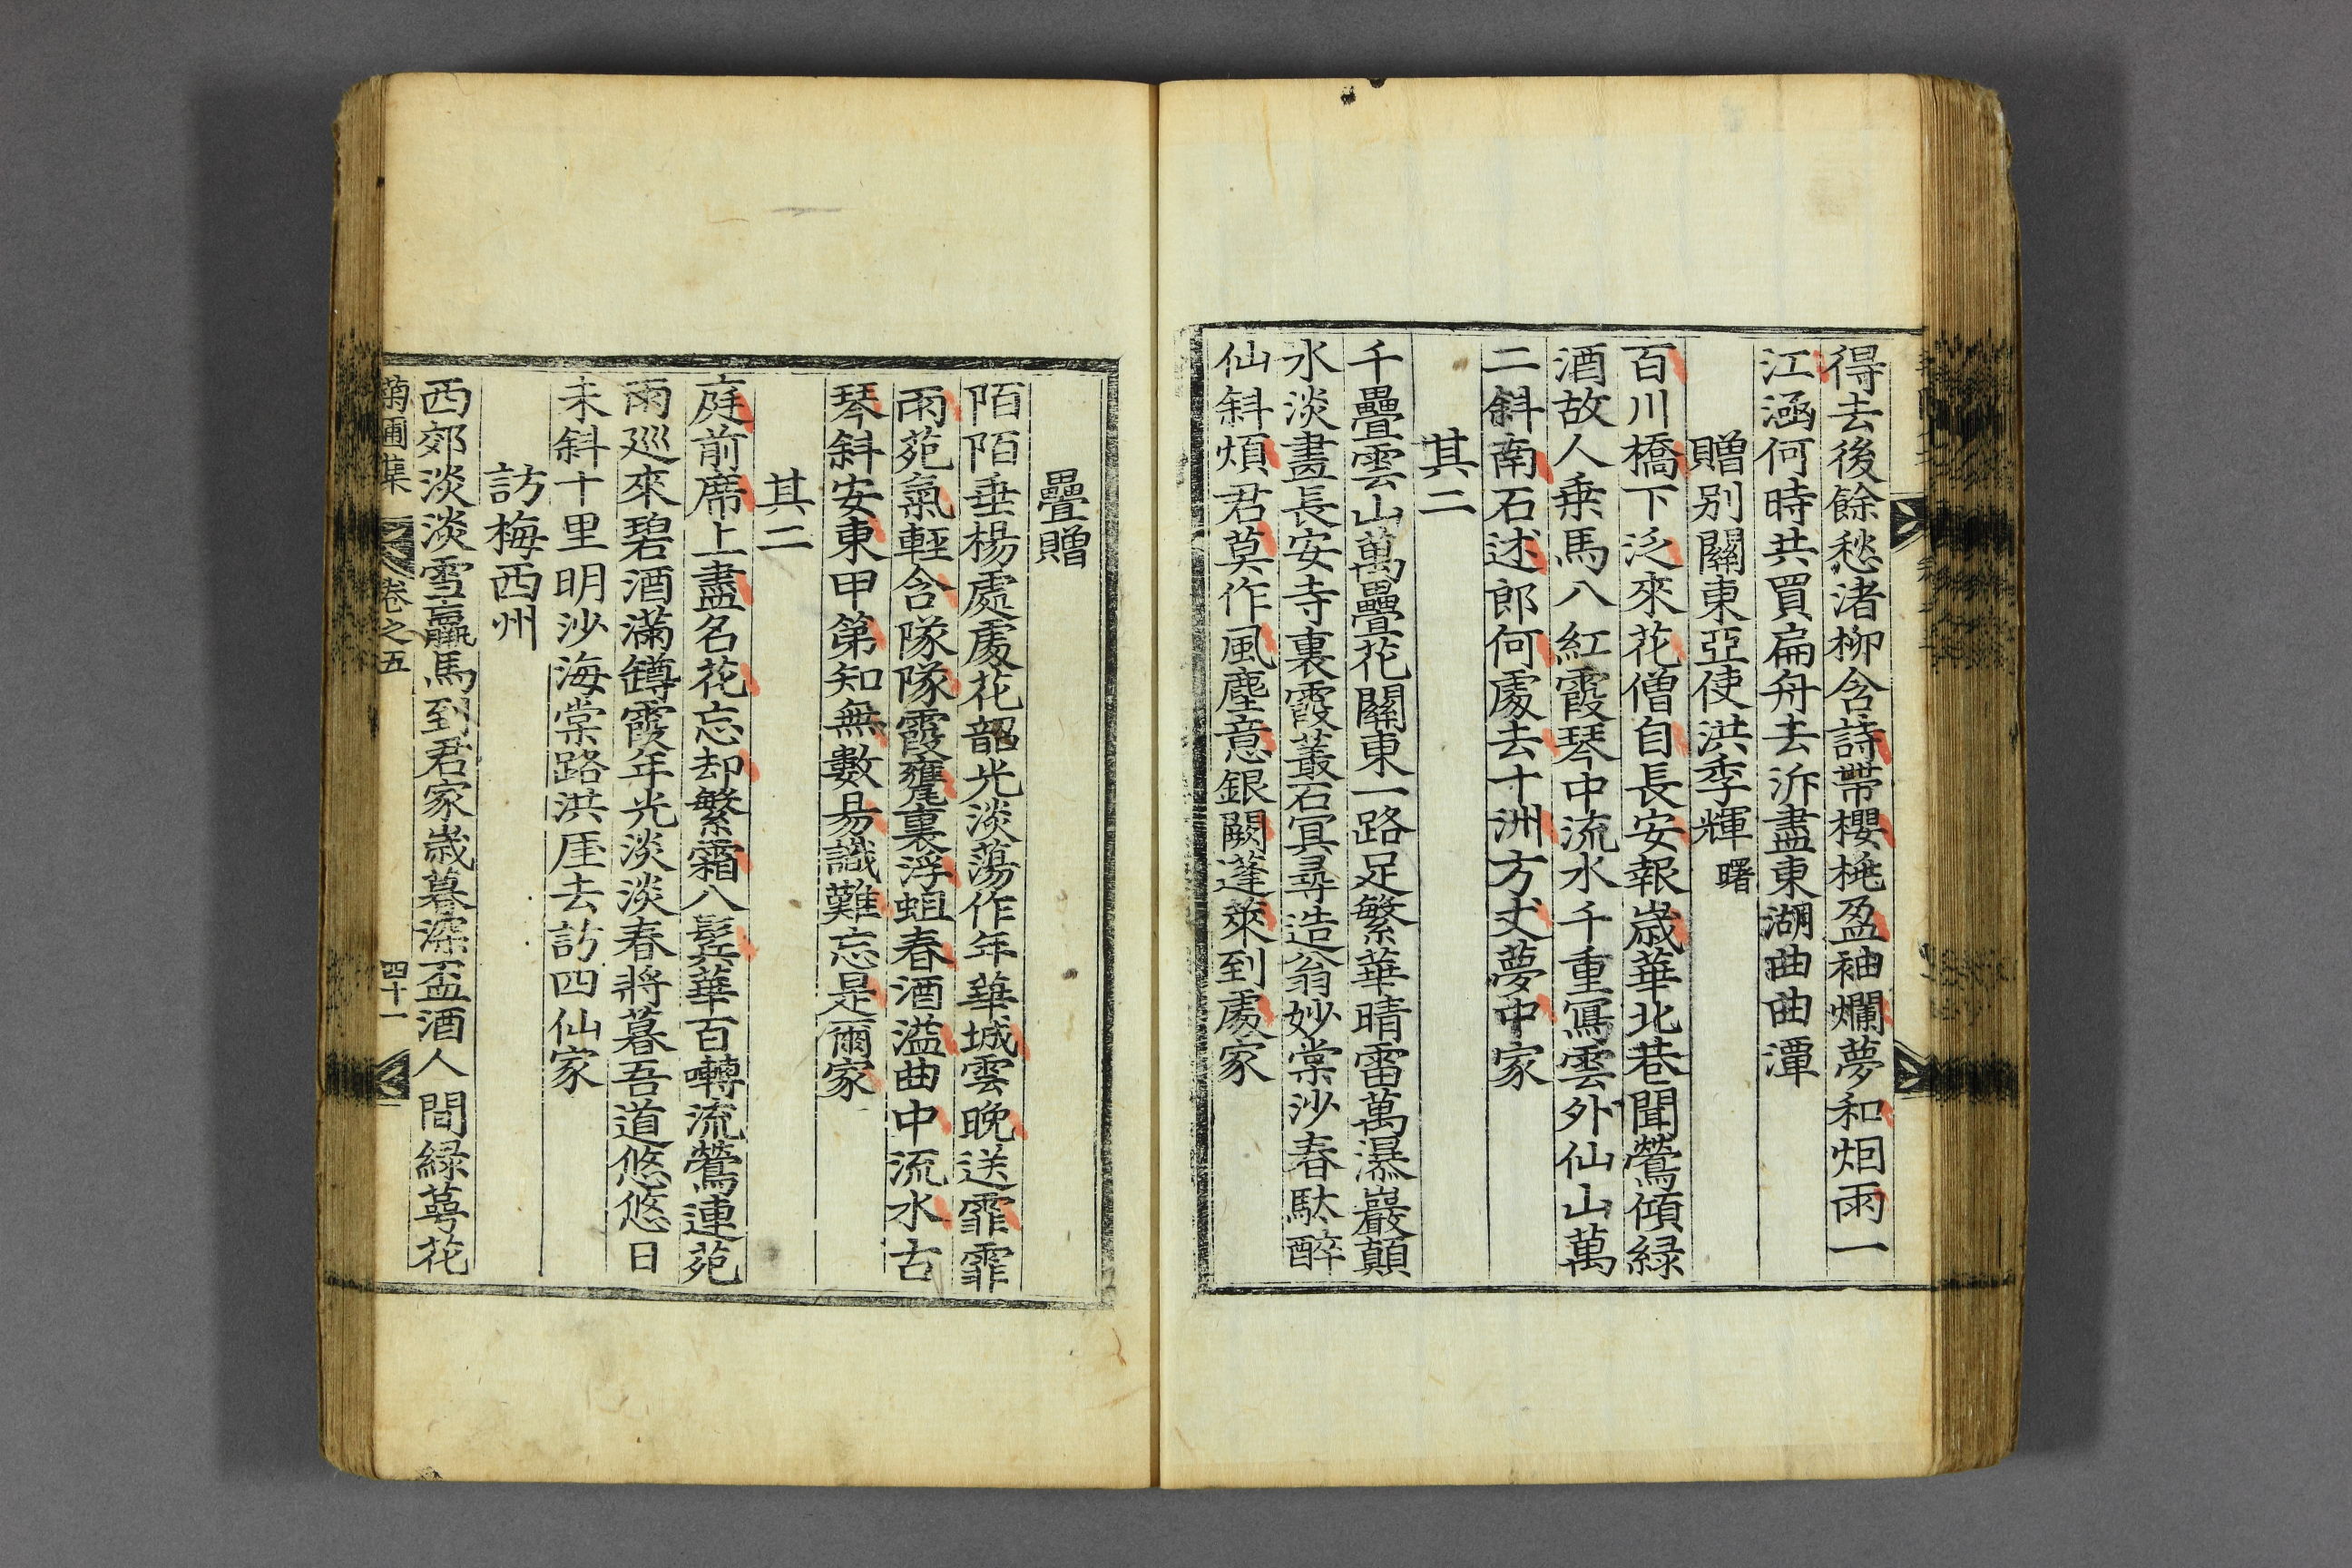 得去後餘愁渚柳含詩帶櫻桅盈袖爛夢和烟雨一
江涵何時共買扁舟去泝盡東湖曲曲潭
贈別關東亞使洪季輝曙
百川橋下泛來花僧自長安報歲華北巷聞鶯傾緑
酒故人乗馬八紅霞琴中流水千重冩雲外仙山萬
二斜南石述郎何處去十洲方丈夢中家
其二
千疊雲山萬疊花關東一路足繁華晴雷萬瀑巖顛
水淡畫長安寺裏霞叢石冥尋造翁妙棠沙春馱醉
仙斜煩君莫作風塵意銀闕蓬萊到處家
疊贈
陌陌垂楊處處花韶光淡蕩作年華城雲晚送霏霏
雨苑氣輕含隊隊霞甕裏浮蛆春酒溢曲中流水古
琴斜安東甲第知無數易識難忘是爾家
其二
庭前席上盡名花忘却繁霜八髩華百囀流鶯連苑
雨廵來碧酒滿罇霞年光淡淡春將暮吾道悠悠日
未斜十里明沙海棠路洪厓去訪四仙家
訪梅西州
西郊淡淡雪羸馬到君家歲暮深盃酒人間緑萼花
菊圃集 卷之五 四十一